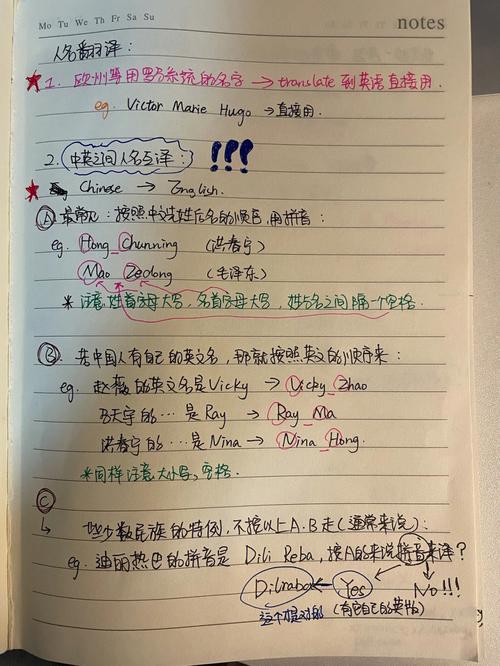 Mo Tu We Th Fr Sa Su notes
人名翻译:
★1. 欧州等用罗马系统的名字 → translate 到英语直接用.
eg. Victor Marie Hugo → 直接用.
2. 中英之间人名互译: !!!
★ Chinese → English.
Ⓐ 最常见: 按照中文先姓后名的顺序,用拼音:
eg. Hong Chunning (洪春宁)
Mao Zedong (毛泽东)
* 注意姓首字母大写, 名首字母大写, 姓与名之间隔一个空格.
Ⓑ 若中国人有自己的英文名, 那就按照英文的顺序来:
eg. 赵薇的英文名是Vicky → Vicky Zhao
马天宇的 … 是 Ray → Ray Ma
洪春宁的 … 是 Nina → Nina Hong.
*同样注意大小写, 空格.
Ⓒ
↳ 一些少数民族的特例, 不按以上A.B走(通常来说):
eg. 迪丽热巴的拼音是 Dili Reba, 按A的来说拼音来译?
Dilraba ← Yes No!!!
这个是对的 (有它自己的英版)